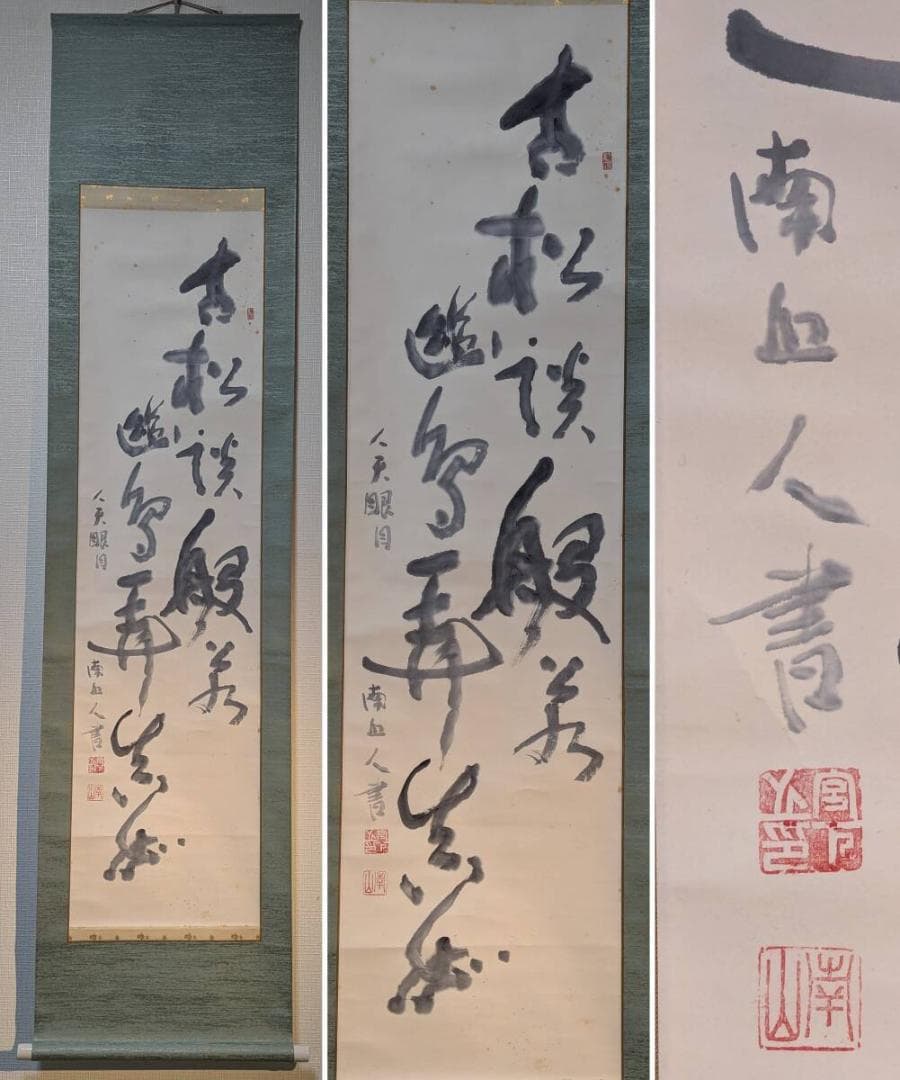 古松談般若
幽鳥弄真如
人天眼目
南山人書
南山
古松談般若
幽鳥弄真如
人天眼目
南山人書
南山
南山人書
南山